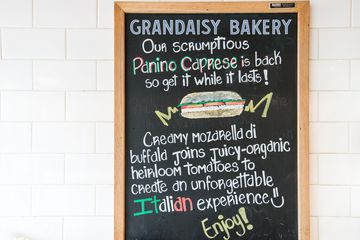 GRANDAISY BAKERY
Our scrumptious
Panino Caprese is back
so get it while it lasts!
Creamy mozarella di
buffala joins juicy-organic
heirloom tomatoes to
create an unforgettable
Italian experience
Enjoy!